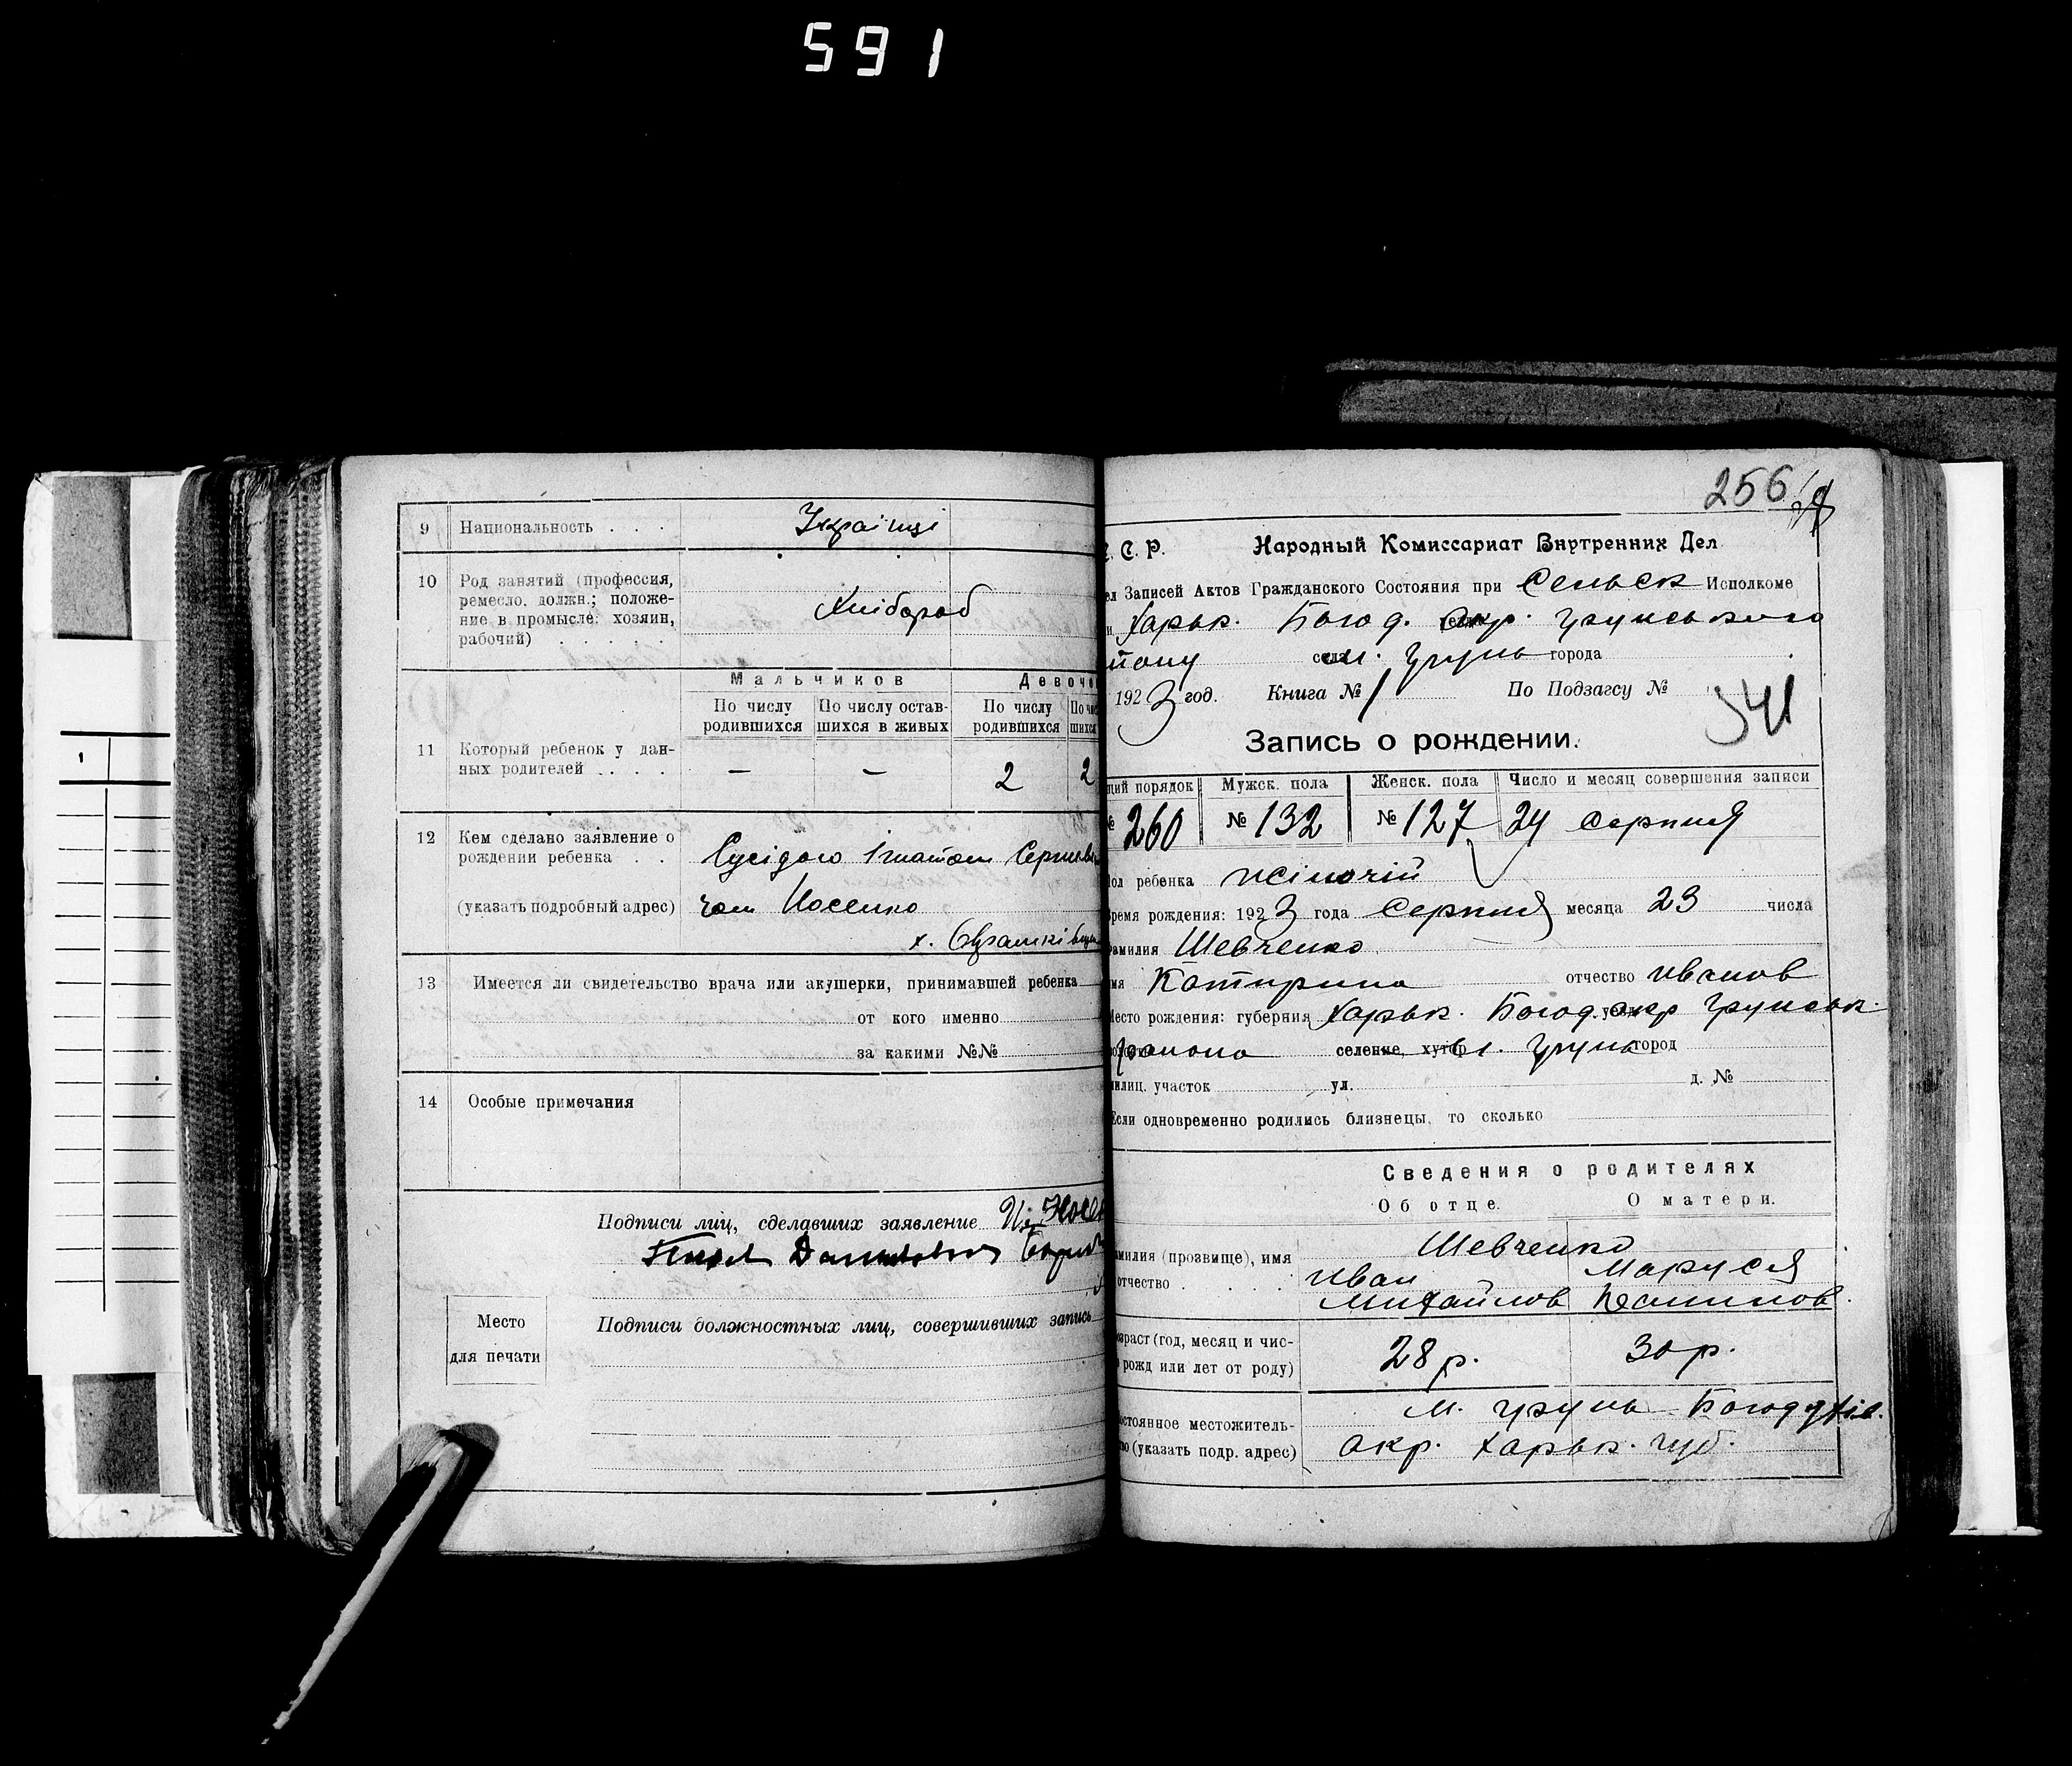 591
9 Национальность . . . Українці
10 Род занятий (профессия,
ремесло, должн.; положе-
ние в промысле: хозяин,
рабочий) . . . . . .
Хлібороб
Мальчиков Девоче
По числу родившихся
По числу остав-шихся в живых
По числу родившихся
11 Который ребенок у дан-
ных родителей . . . .
— — 2 2
12 Кем сделано заявление о
рождении ребенка . .
Сусідом Ігнатом
(указать подробный адрес) чом Носенко
х.
13 Имеется ли свидетельство врача или акушерки, принимавшей ребенка
от кого именно
за какими №№
14 Особые примечания
Подписи лиц, сделавших заявление
Место
для печати
Подписи должностных лиц, совершивших запись
256
С. Р. Народный Комиссариат Внутренних Дел
ел Записей Актов Гражданского Состояния при Сельск Исполкоме
и Харьк. Богод. окр. Грунського
йону села м. Грунь города
1923 год. Книга № 1 По Подзагсу № 341
Запись о рождении.
щий порядок Мужск. пола Женск. пола Число и месяц совершения записи
№ 260 № 132 № 127 24 серпня
Пол ребенка жіночій
Время рождения: 1923 года Серпня месяца 23 числа
Фамилия Шевченко
имя Катирина отчество Иванов
Место рождения: губерния Харьк. Богод. окр Грунськ.
района селение, хутор м. Грунь город
милиц. участок ул. д. №
Если одновременно родились близнецы, то сколько
Сведения о родителях
Об отце. О матери.
амилия (прозвище), имя
отчество . . . .
Шевченко
Иван Маруся
Михайлов
озраст (год, месяц и чис-
рожд или лет от роду)
28 р. 30 р.
остоянное местожитель-
о (указать подр. адрес)
м. Грунь Богодухів.
окр. Харьк. губ.
1